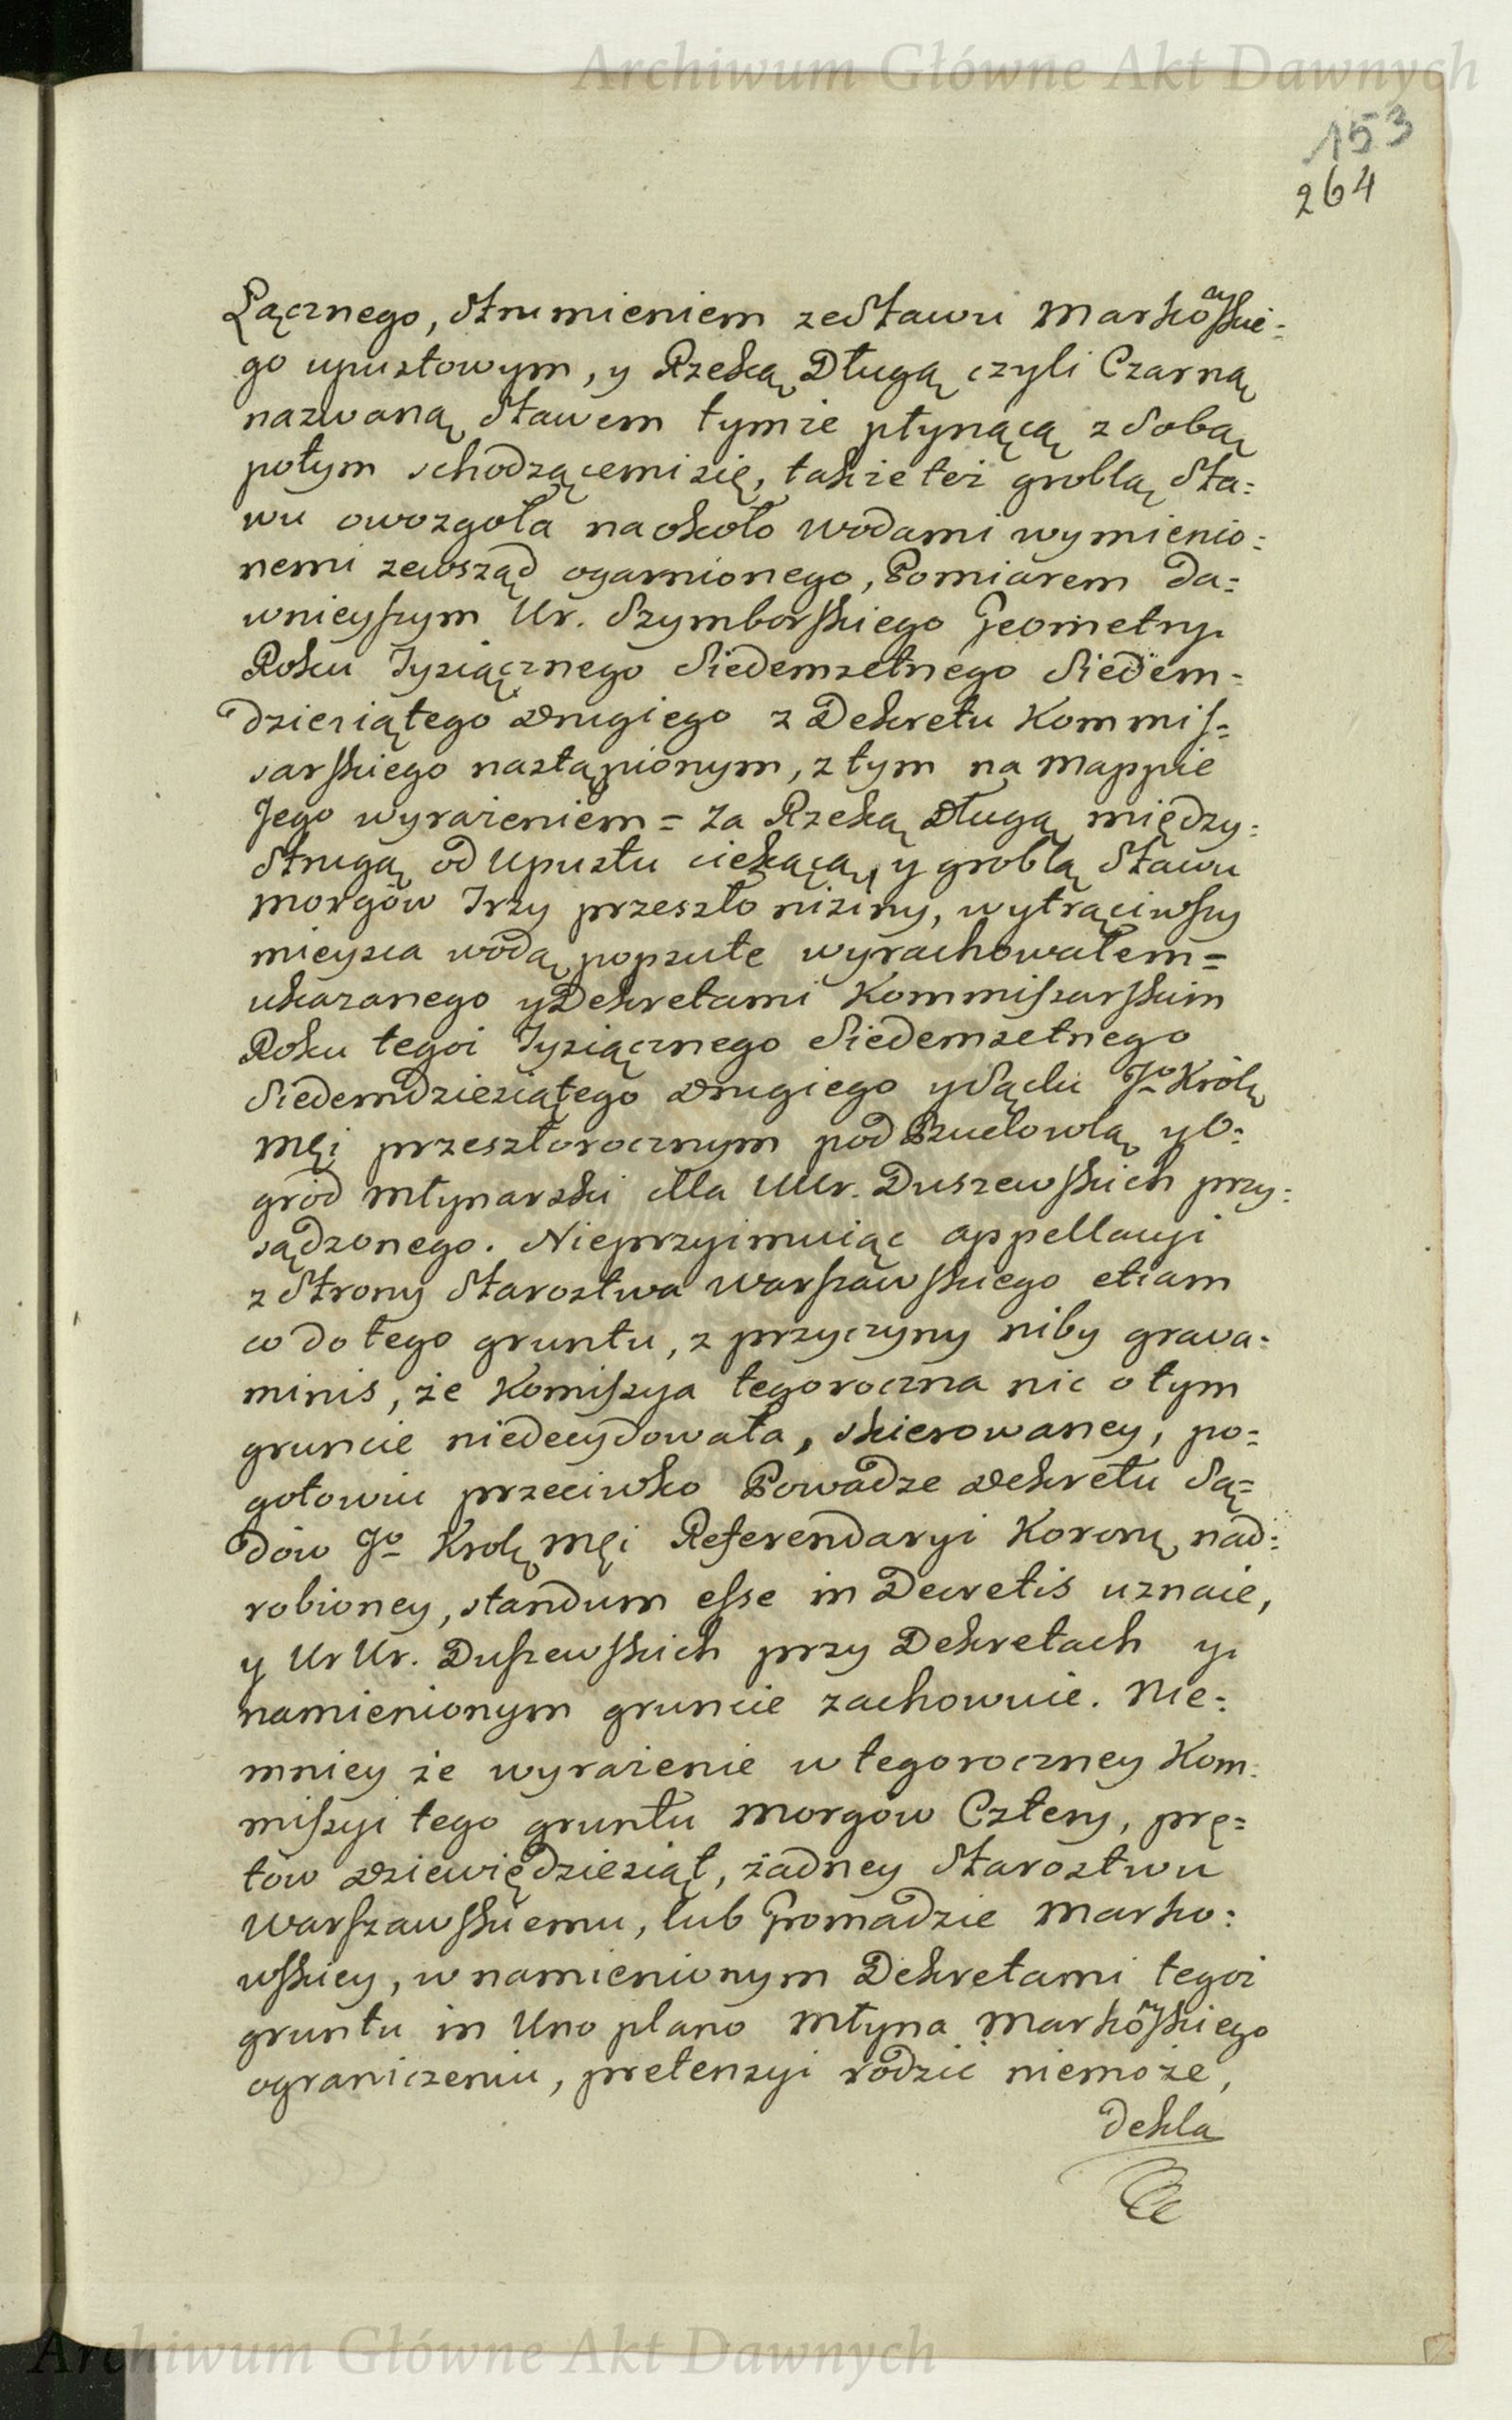 Archiwum Główne Akt Dawnych
153
264
Łącznego, strumieniem ze Stawu Markowskie=
go upustowym, y Rzeką Długą czyli Czarną
nazwaną Stawem tymże płynącą z sobą
potym schodzącemi się, także też groblą Sta=
wu owozgoła naokoło wodami wymienio=
nemi zewsząd ogarnionego, Pomiarem da=
wnieyszym Ur. Szymborskiego Geometry
Roku Tysiącznego Siedemsetnego Siedem=
dziesiątego Drugiego z Dekretu Kommis=
sarskiego nastąpionym, z tym na Mappie
Jego wyrażeniem = Za Rzeką Długą między=
Strugą od Upustu ciekącą, y groblą Stawu
Morgów Trzy przeszło niziny, wytrąciwszy
mieysca wodą popsute wyrachowałem =
ukazanego y Dekretami Kommissarskim
Roku tegoż Tysiącznego Siedemsetnego
Siedemdziesiątego Drugiego y Sądu Jo Krolę
Męi przeszłorocznym pod Bzuełowlą y O=
gród Młynarski dla UUr. Duszewskich przy=
sądzonego. Nieprzyimuiąc appellacyi
z Strony Starostwa Warszawskiego etiam
co do tego gruntu, z przyczyny niby grava=
minis, że Komissya tegoroczna nic o tym
gruncie niedecydowała, skierowaney, po=
gotowiu przeciwko Powadze Dekretu Są=
dow Jo Krolę Męi Referendaryi Koronę nad=
robioney, standum esse in Decretis uznaie,
y UrUr. Duszewskich przy Dekretach y
namienionym gruncie zachowuie. Nie=
mniey że wyrażenie w tegoroczney Kom=
missyi tego gruntu Morgow Cztery, prę=
tów Dziewiędziesiąt, żadney Starostwu
Warszawskiemu, lub Gromadzie Marko=
wskiey, w namienionym Dekretami tegoż
gruntu in Uno plano Młyna Markowskiego
ograniczeniu, pretensyi rodzić niemoże,
dekla
Archiwum Główne Akt Dawnych